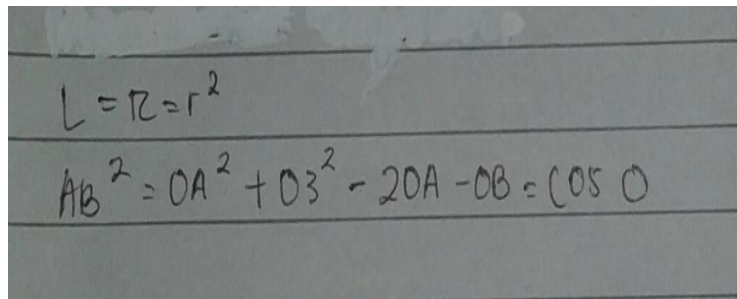 L = π = r²
AB² = OA² + O3² - 2OA - OB = COS O